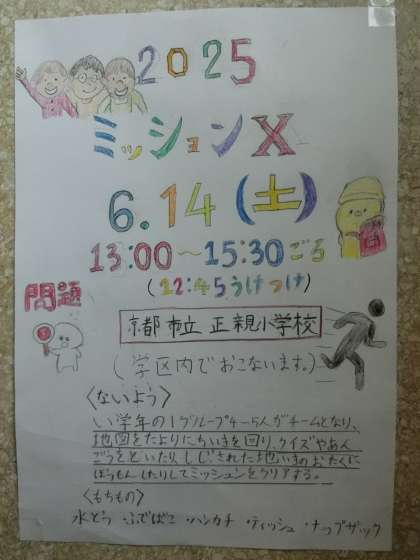 2025
ミッションX
6.14(土)
13:00〜15:30ごろ
(12:45うけつけ)
問題
京都市立 正親小学校
(学区内でおこないます。)
〈ないよう〉
い学年の1グループ4〜5人がチームとなり、
地図をたよりにちいきを回り、クイズやあん
ごうをといたり、しじされた地いきのおたくに
ほうもんしたりしてミッションをクリアする。
〈もちもの〉
水とう ふでばこ ・ハンカチ ・ティッシュ ・ナップザック